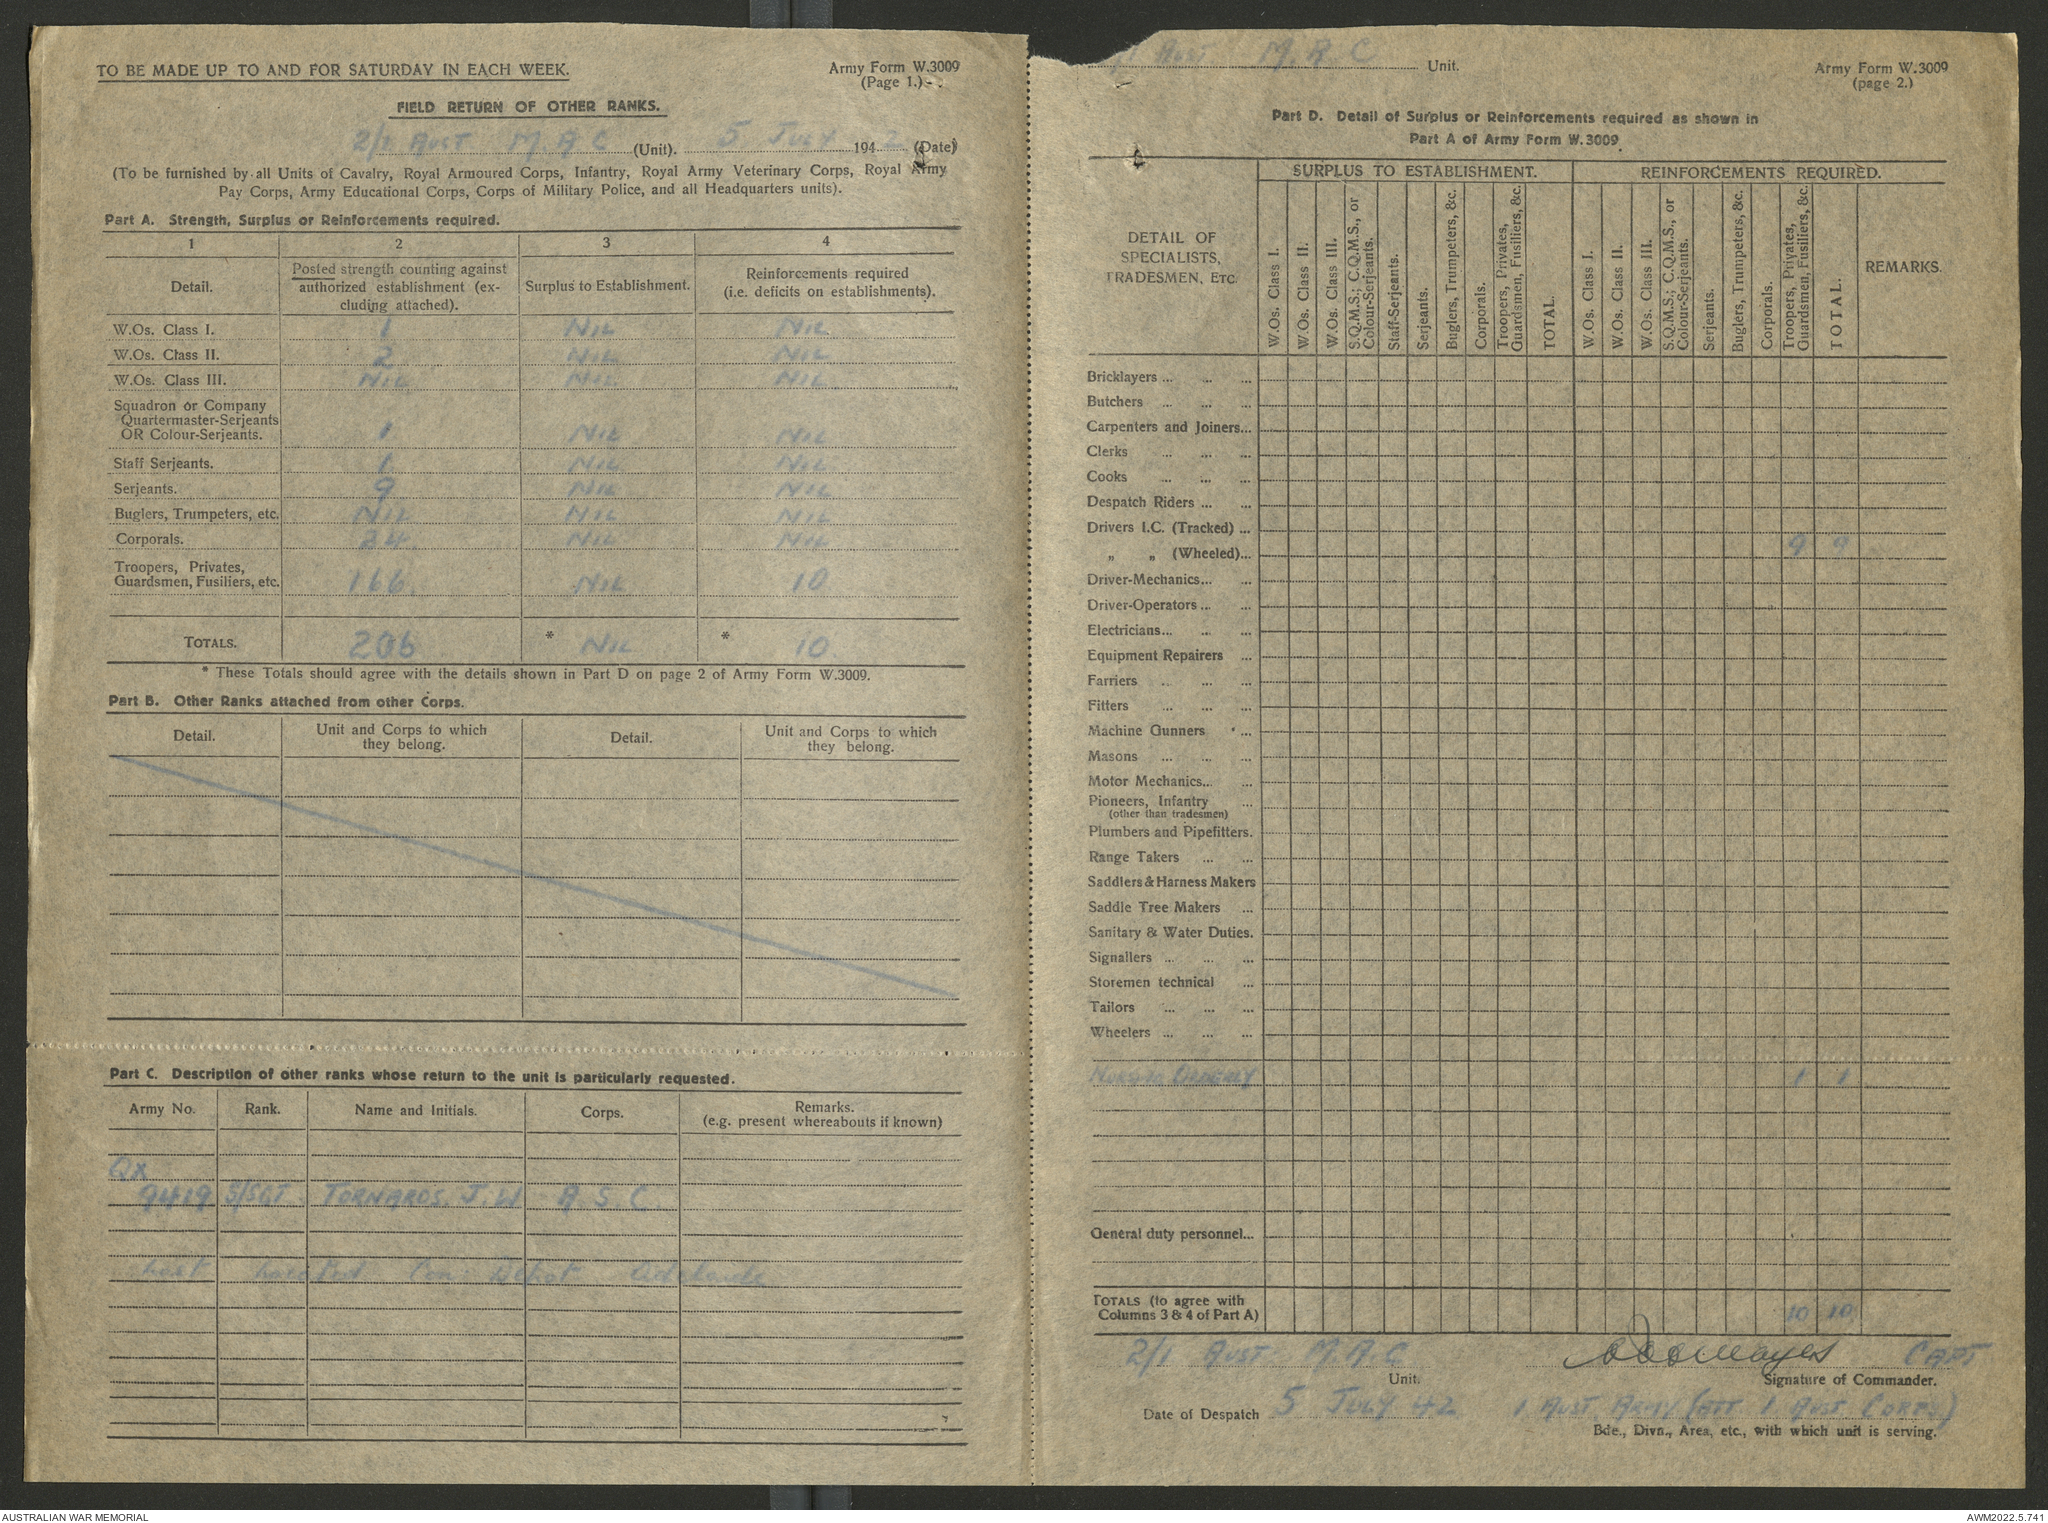 TO BE MADE UP TO AND FOR SATURDAY IN EACH WEEK.
Army Form W.3009
(Page 1.)
FIELD RETURN OF OTHER RANKS.
2/1 AUST M.A.C (Unit). 5 JULY 1942 (Date)
(To be furnished by all Units of Cavalry, Royal Armoured Corps, Infantry, Royal Army Veterinary Corps, Royal Army
Pay Corps, Army Educational Corps, Corps of Military Police, and all Headquarters units).
Part A. Strength, Surplus or Reinforcements required.
1 2 3 4
Detail. Posted strength counting against authorized establishment (excluding attached). Surplus to Establishment. Reinforcements required (i.e. deficits on establishments).
W.Os. Class I. 1 NIL NIL
W.Os. Class II. 2 NIL NIL
W.Os. Class III. NIL NIL NIL
Squadron or Company
Quartermaster-Serjeants
OR Colour-Serjeants. 1 NIL NIL
Staff Serjeants. 1 NIL NIL
Serjeants. 9 NIL NIL
Buglers, Trumpeters, etc. NIL NIL NIL
Corporals. 24 NIL NIL
Troopers, Privates,
Guardsmen, Fusiliers, etc. 166 NIL 10
TOTALS. 206 * NIL * 10
* These Totals should agree with the details shown in Part D on page 2 of Army Form W.3009.
Part B. Other Ranks attached from other Corps.
Detail. Unit and Corps to which they belong. Detail. Unit and Corps to which they belong.
Part C. Description of other ranks whose return to the unit is particularly requested.
Army No. Rank. Name and Initials. Corps. Remarks.
(e.g. present whereabouts if known)
QX
9419 S/SGT TORNAROS. J.W A.S.C.
Last located Con: Depot Adelaide
AUST M.A.C Unit.
Army Form W.3009
(page 2.)
Part D. Detail of Surplus or Reinforcements required as shown in
Part A of Army Form W.3009
DETAIL OF
SPECIALISTS,
TRADESMEN, ETC.
SURPLUS TO ESTABLISHMENT. REINFORCEMENTS REQUIRED.
W.Os. Class I.
W.Os. Class II.
W.Os. Class III.
S.Q.M.S.; C.Q.M.S., or Colour-Serjeants.
Staff-Serjeants.
Serjeants.
Buglers, Trumpeters, &c.
Corporals.
Troopers, Privates, Guardsmen, Fusiliers, &c.
TOTAL.
W.Os. Class I.
W.Os. Class II.
W.Os. Class III.
S.Q.M.S.; C.Q.M.S., or Colour-Serjeants.
Serjeants.
Buglers, Trumpeters, &c.
Corporals.
Troopers, Privates, Guardsmen, Fusiliers, &c.
TOTAL.
REMARKS.
Bricklayers ... ... ...
Butchers ... ... ...
Carpenters and Joiners...
Clerks ... ... ...
Cooks ... ... ...
Despatch Riders ... ...
Drivers I.C. (Tracked) ...
„ „ (Wheeled)... 9 9
Driver-Mechanics... ...
Driver-Operators ... ...
Electricians... ... ...
Equipment Repairers ...
Farriers ... ... ...
Fitters ... ... ...
Machine Gunners ...
Masons ... ... ...
Motor Mechanics... ...
Pioneers, Infantry ...
(other than tradesmen)
Plumbers and Pipefitters.
Range Takers ... ...
Saddlers & Harness Makers
Saddle Tree Makers ...
Sanitary & Water Duties.
Signallers ... ... ...
Storemen technical ...
Tailors ... ... ...
Wheelers ... ... ...
NURSING ORDERLY 1 1
General duty personnel...
TOTALS (to agree with
Columns 3 & 4 of Part A) 10 10
2/1 AUST M.A.C CAPT
Unit. Signature of Commander.
Date of Despatch 5 JULY 42 1 AUST. ARMY (ATT 1 AUST. CORPS)
Bde., Divn., Area, etc., with which unit is serving.
AUSTRALIAN WAR MEMORIAL
AWM2022.5.741